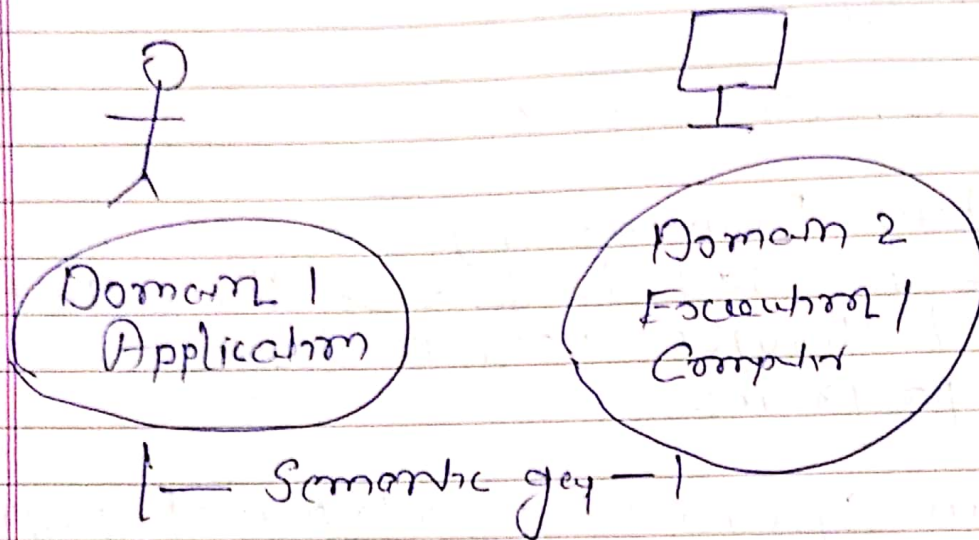 Domain 1
Application
Domain 2
Execution /
Computer
Semantic gap